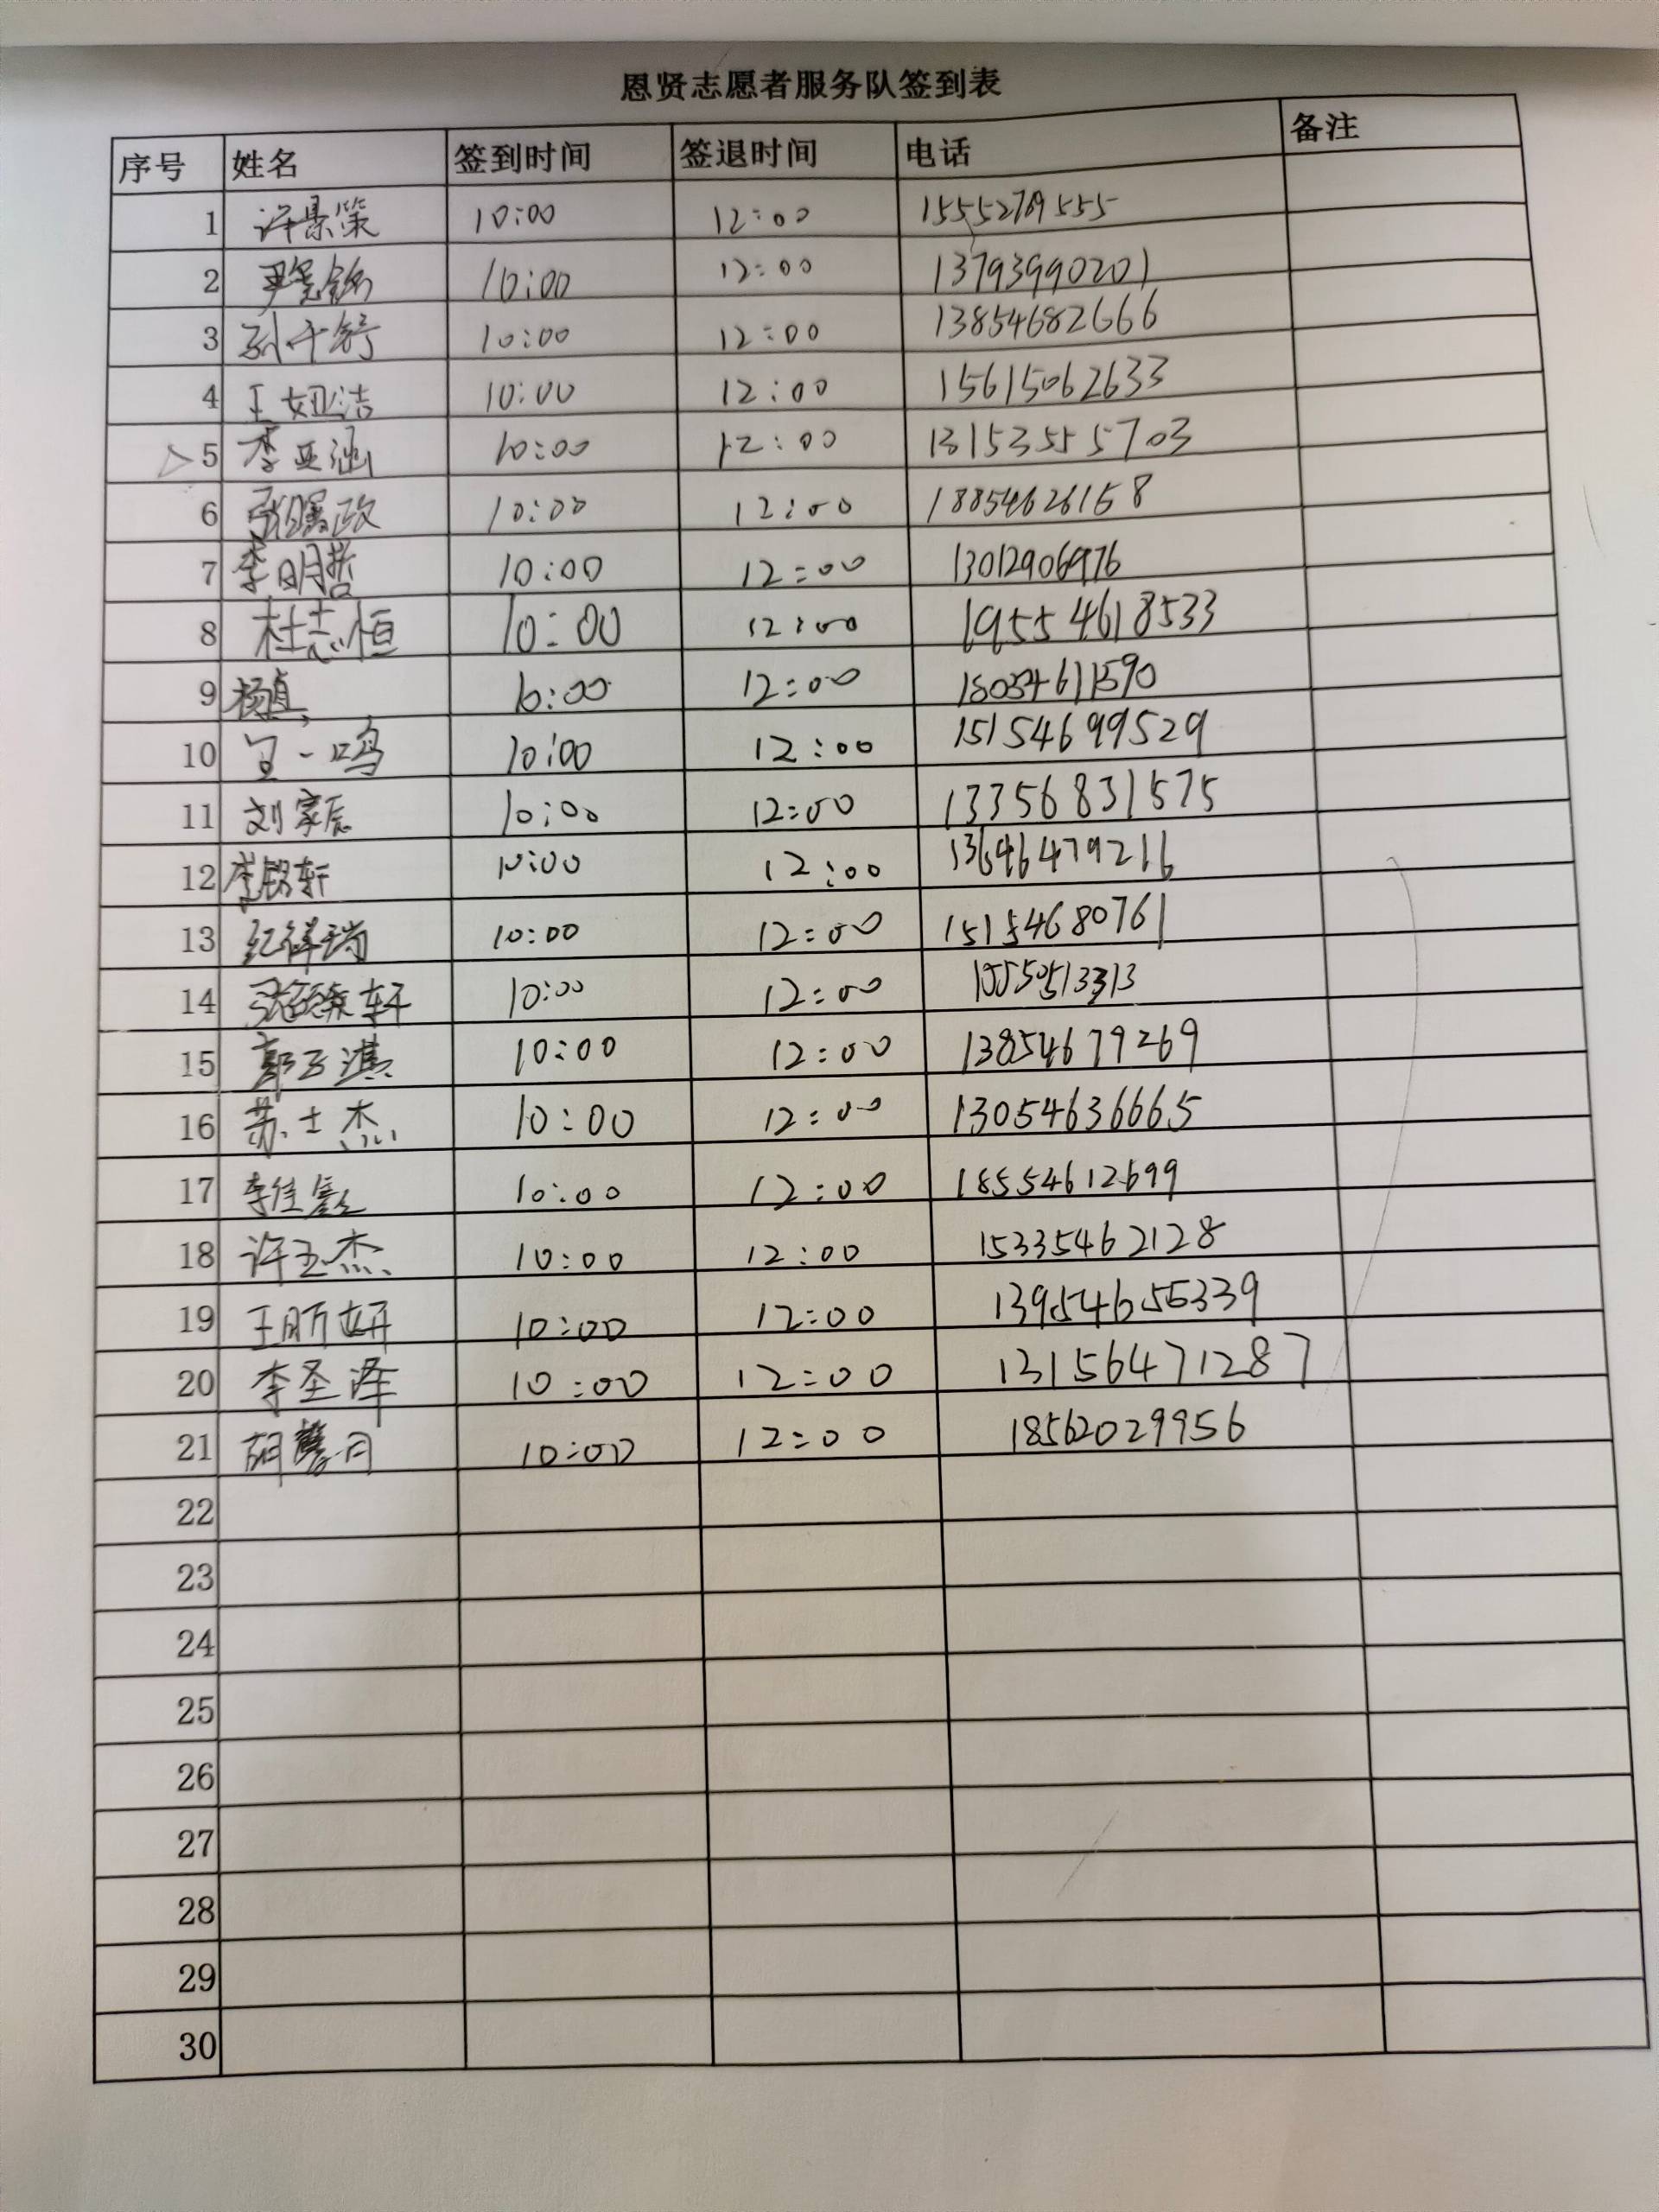 恩贤志愿者服务队签到表
序号 姓名 签到时间 签退时间 电话 备注
1 许景策 10:00 12:00 15552789555
2 10:00 12:00 13793990201
3 孙千舒 10:00 12:00 13854682666
4 王妞洁 10:00 12:00 15615062633
5 李亚涵 10:00 12:00 13153555703
6 10:00 12:00 18854626158
7 李明哲 10:00 12:00 13012906976
8 杜志恒 10:00 12:00 19554618533
9 10:00 12:00 18054611590
10 王一鸣 10:00 12:00 15154699529
11 刘家辰 10:00 12:00 13356831575
12 李铭轩 10:00 12:00 13646479216
13 纪祥瑞 10:00 12:00 15154680761
14 10:00 12:00
15 郭子淇 10:00 12:00 13854679269
16 苏士杰 10:00 12:00 13054636665
17 10:00 12:00 18554612699
18 许玉杰 10:00 12:00 15335462128
19 王昕妍 10:00 12:00 13954655339
20 李圣泽 10:00 12:00 13156471287
21 10:00 12:00 18562029956
22
23
24
25
26
27
28
29
30